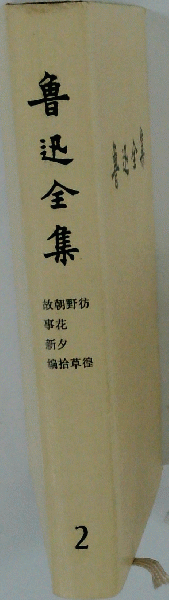 魯迅全集
彷徨
野草
朝花夕拾
故事新編
2
魯迅全集